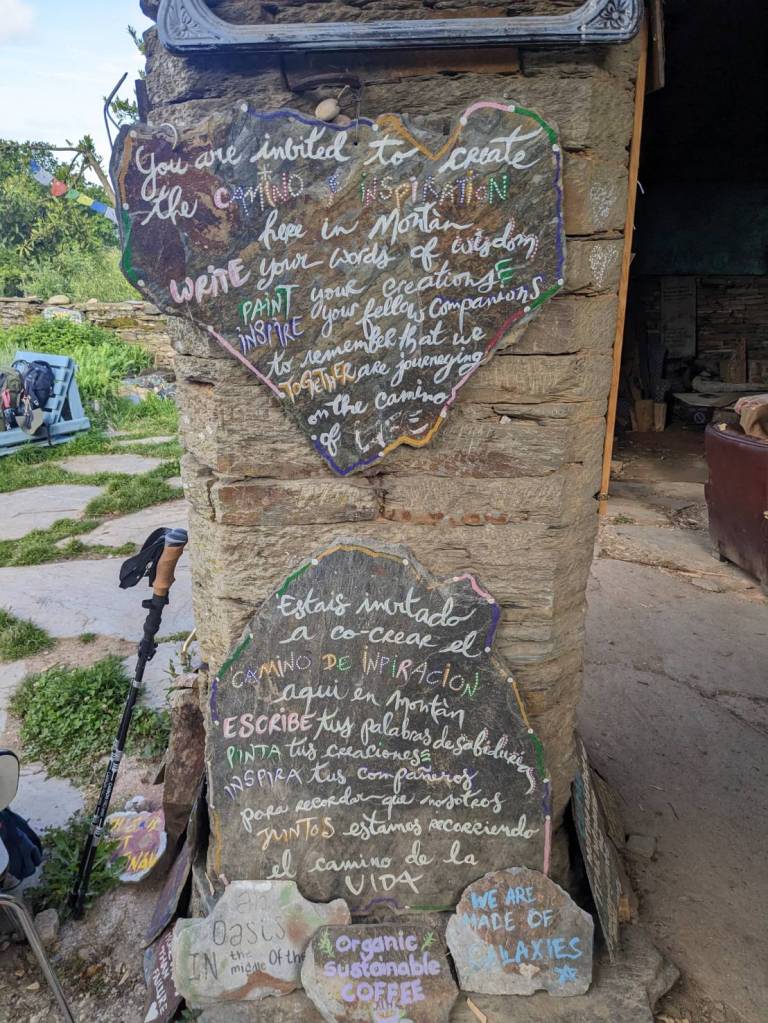 You are invited to create
the CAMINO of INSPIRATION
here in Montàn
WRITE your words of wisdom
PAINT your creations &
INSPIRE your fellow companions
to remember that we
TOGETHER are journeying
on the camino
of
Estais invitado
a co-crear el
CAMINO DE INPIRACION
aqui en Montàn
ESCRIBE tus palabras de sabiduria
PINTA tus creaciones &
INSPIRA tus compañeros
para recordar que nosotros
JUNTOS estamos recorriendo
el camino de la
VIDA
an
Oasis
IN the middle of the
Organic
sustainable
COFFEE
WE ARE
MADE OF
GALAXIES